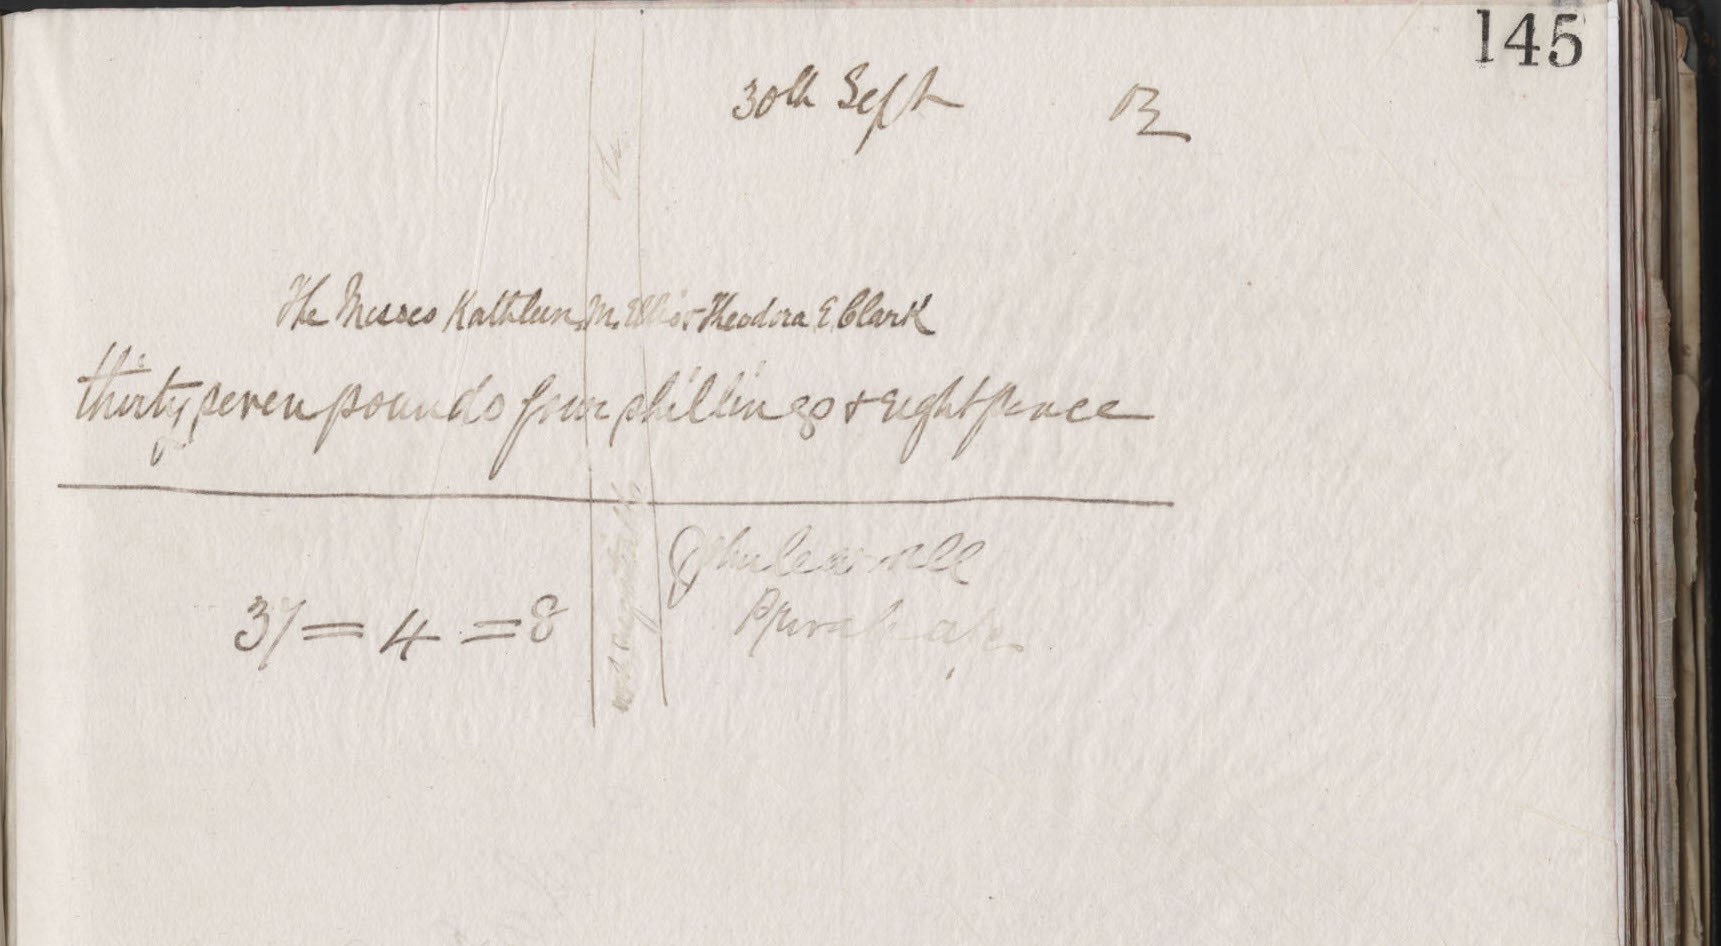 145
30th Sept 13
The Misses Kathleen M. Ellis & Theodora E Clark
thirty seven pounds four shillings & eight pence
37 = 4 = 8
not negotiable
Private a/c